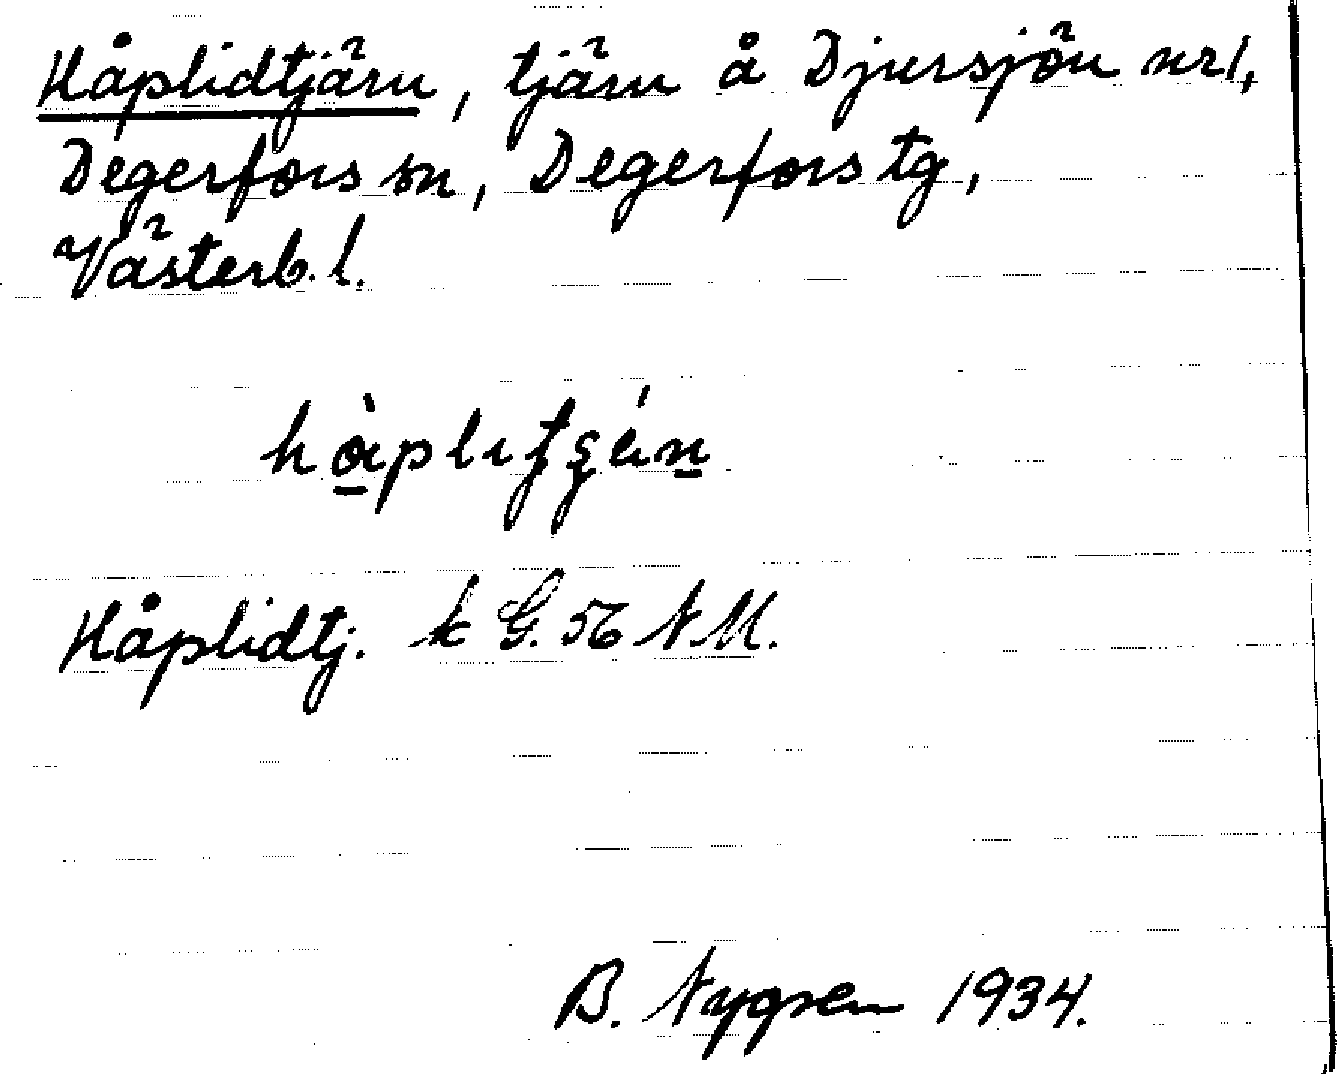 Håplidtjärn, tjärn å Djursjön nr 1,
Degerfors sn, Degerfors tg,
Västerb. l.
Håplidtj. k G. 56 NM.
B. 1934.